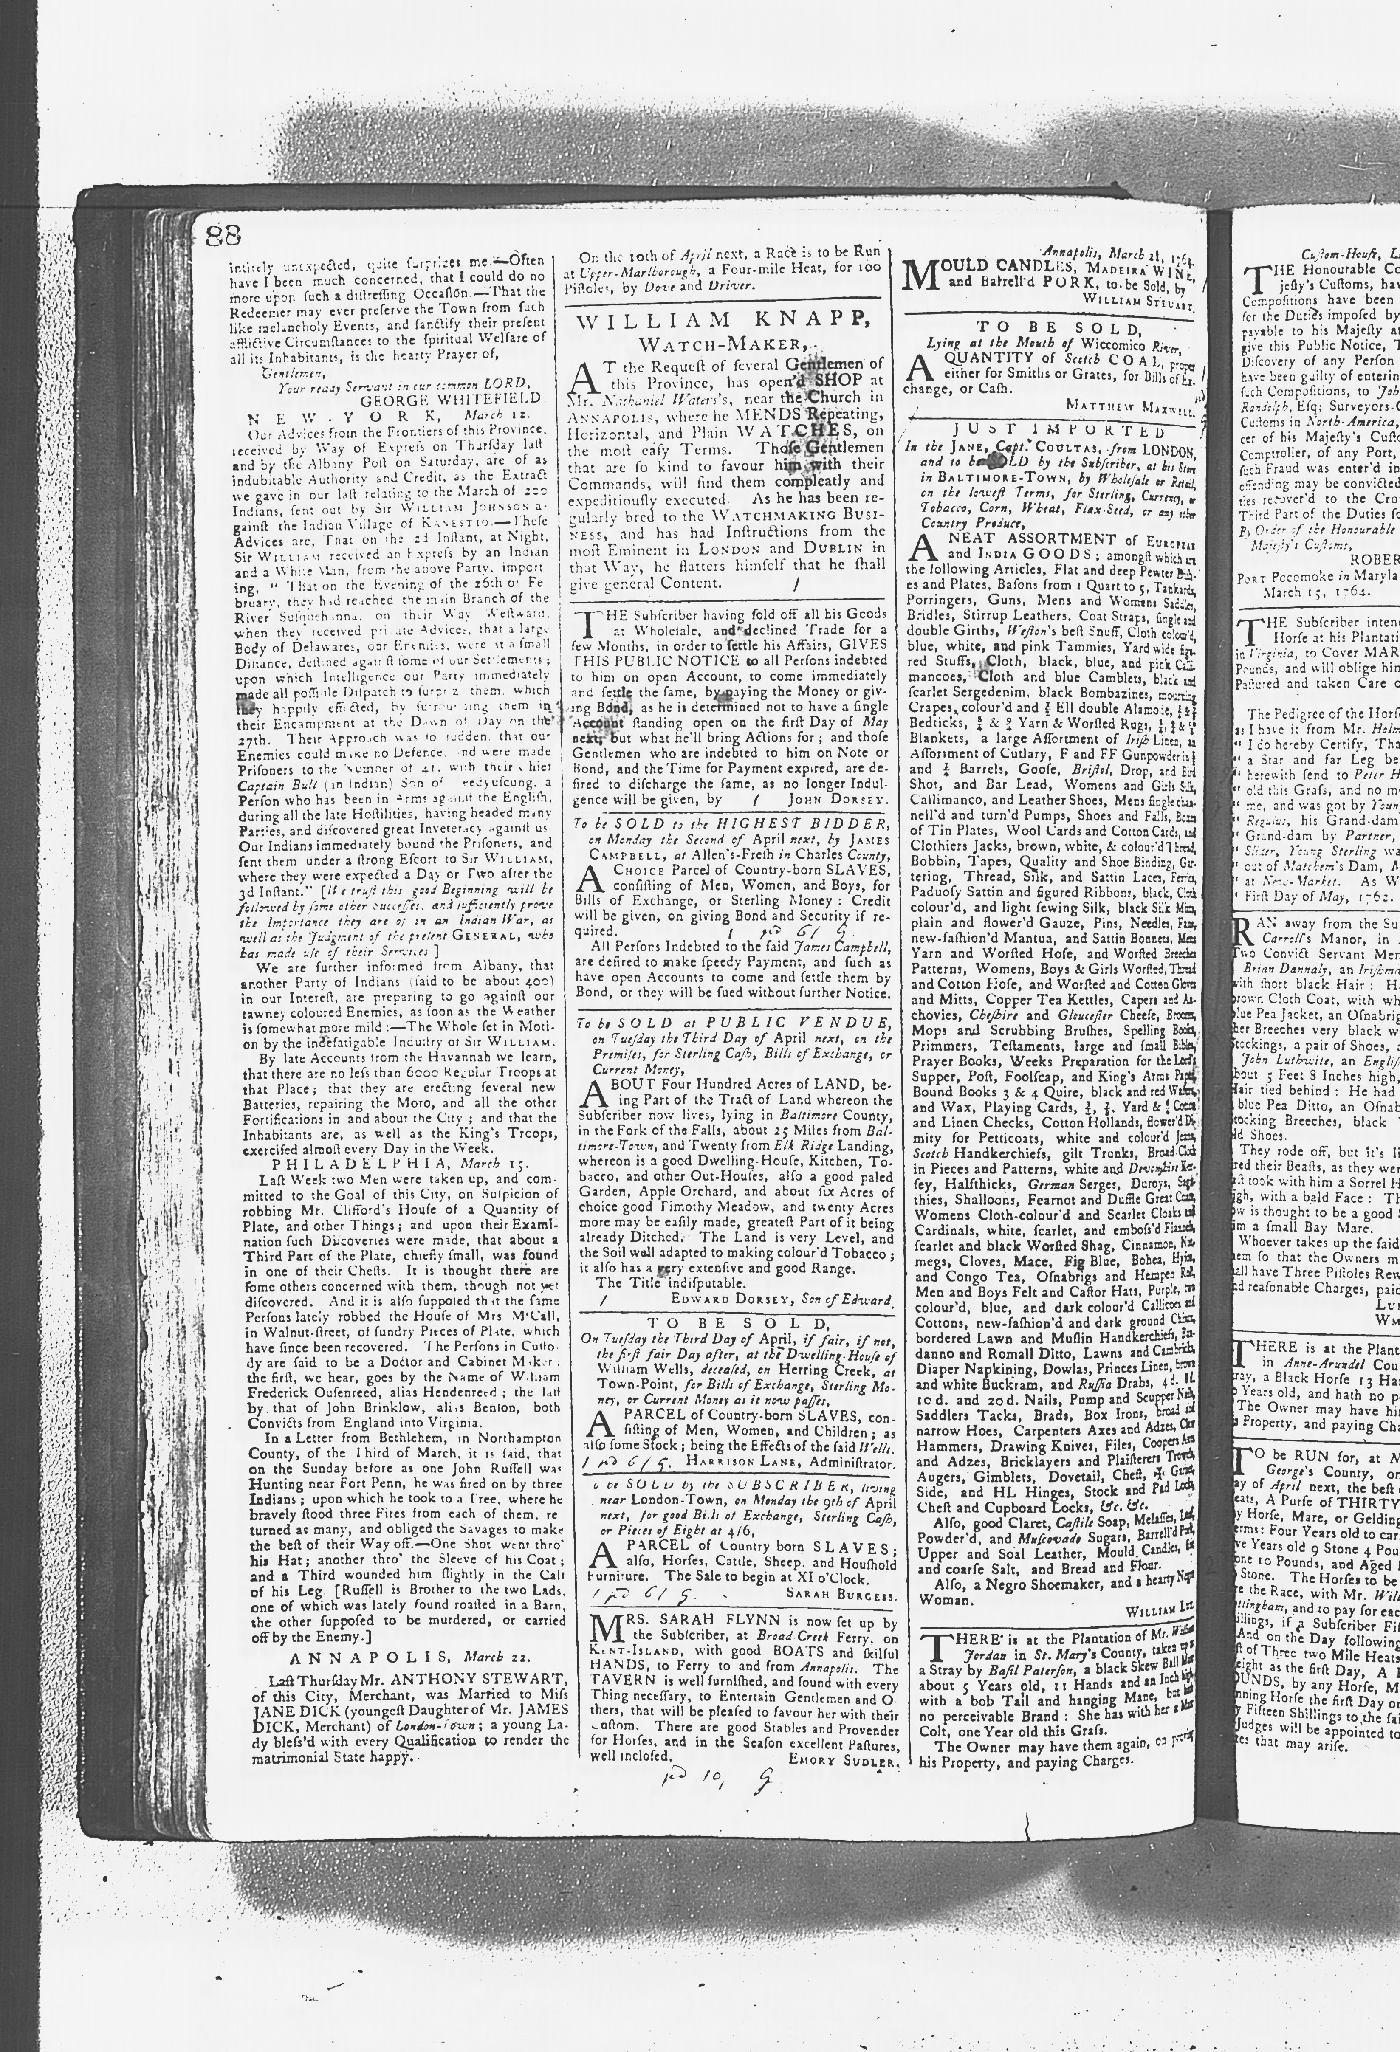 88
intirely unexpected, quite surprizes me.—Often
have I been much concerned, that I could do no
more upon such a distressing Occasion.—That the
Redeemer may ever preserve the Town from such
like melancholy Events, and sanctify their present
afflictive Circumstances to the spiritual Welfare of
all its Inhabitants, is the hearty Prayer of,
Gentlemen,
Your ready Servant in our common LORD,
GEORGE WHITEFIELD
NEW-YORK, March 12.
Our Advices from the Frontiers of this Province,
received by Way of Express on Thursday last
and by the Albany Post on Saturday, are of as
indubitable Authority and Credit, as the Extract
we gave in our last relating to the March of 200
Indians, sent out by Sir WILLIAM JOHNSON a-
gainst the Indian Village of KANESTIO.—These
Advices are, That on the 2d Instant, at Night,
Sir WILLIAM received an Express by an Indian
and a White Man, from the above Party, import
ing, " That on the Evening of the 26th of Fe
bruary, they had reached the main Branch of the
River Susquehanna, on their Way Westward,
when they received private Advices, that a large
Body of Delawares, our Enemies, were at a small
Distance, destined against some of our Settlements;
upon which Intelligence our Party immediately
made all possible Dispatch to surprize them, which
they happily effected, by surrounding them in
their Encampment at the Dawn of Day on the
27th. Their Approach was so sudden, that our
Enemies could make no Defence, and were made
Prisoners to the Number of 41, with their Chief
Captain Bull (in Indian) Son of Teedyuscung, a
Person who has been in Arms against the English,
during all the late Hostilities, having headed many
Parties, and discovered great Inveteracy against us
Our Indians immediately bound the Prisoners, and
sent them under a strong Escort to Sir WILLIAM,
where they were expected a Day or Two after the
3d Instant." [We trust this good Beginning will be
followed by some other Successes, and sufficiently prove
the Importance they are of in an Indian War, as
well as the Judgment of the present GENERAL, who
has made use of their Services]
We are further informed from Albany, that
another Party of Indians (said to be about 400)
in our Interest, are preparing to go against our
tawney coloured Enemies, as soon as the Weather
is somewhat more mild:—The Whole set in Moti-
on by the indefatigable Industry of Sir WILLIAM.
By late Accounts from the Havannah we learn,
that there are no less than 6000 Regular Troops at
that Place; that they are erecting several new
Batteries, repairing the Moro, and all the other
Fortifications in and about the City; and that the
Inhabitants are, as well as the King's Troops,
exercised almost every Day in the Week.
PHILADELPHIA, March 15.
Last Week two Men were taken up, and com-
mitted to the Goal of this City, on Suspicion of
robbing Mr. Clifford's House of a Quantity of
Plate, and other Things; and upon their Exami-
nation such Discoveries were made, that about a
Third Part of the Plate, chiefly small, was found
in one of their Chests. It is thought there are
some others concerned with them, though not yet
discovered. And it is also supposed that the same
Persons lately robbed the House of Mrs M'Call,
in Walnut-street, of sundry Pieces of Plate, which
have since been recovered. The Persons in Custo-
dy are said to be a Doctor and Cabinet Maker;
the first, we hear, goes by the Name of William
Frederick Ousenreed, alias Hendenreed; the last
by that of John Brinklow, alias Benson, both
Convicts from England into Virginia.
In a Letter from Bethlehem, in Northampton
County, of the Third of March, it is said, that
on the Sunday before as one John Russell was
Hunting near Fort Penn, he was fired on by three
Indians; upon which he took to a Tree, where he
bravely stood three Fires from each of them, re
turned as many, and obliged the Savages to make
the best of their Way off.—One Shot went thro'
his Hat; another thro' the Sleeve of his Coat;
and a Third wounded him slightly in the Calf
of his Leg. [Russell is Brother to the two Lads,
one of which was lately found roasted in a Barn,
the other supposed to be murdered, or carried
off by the Enemy.]
ANNAPOLIS, March 22.
Last Thursday Mr. ANTHONY STEWART,
of this City, Merchant, was Married to Miss
JANE DICK (youngest Daughter of Mr. JAMES
DICK, Merchant) of London-Town; a young La-
dy bless'd with every Qualification to render the
matrimonial State happy.
On the 10th of April next, a Race is to be Run
at Upper-Marlborough, a Four-mile Heat, for 100
Pistoles, by Dove and Driver.
WILLIAM KNAPP,
WATCH-MAKER,
AT the Request of several Gentlemen of
this Province, has open'd SHOP at
Mr. Nathaniel Waters's, near the Church in
ANNAPOLIS, where he MENDS Repeating,
Horizontal, and Plain WATCHES, on
the most easy Terms. Those Gentlemen
that are so kind to favour him with their
Commands, will find them compleatly and
expeditiously executed. As he has been re-
gularly bred to the WATCHMAKING BUSI-
NESS, and has had Instructions from the
most Eminent in LONDON and DUBLIN in
that Way, he flatters himself that he shall
give general Content. 1
THE Subscriber having sold off all his Goods
at Wholesale, and declined Trade for a
few Months, in order to settle his Affairs, GIVES
THIS PUBLIC NOTICE to all Persons indebted
to him on open Account, to come immediately
and settle the same, by paying the Money or giv-
ing Bond, as he is determined not to have a single
Account standing open on the first Day of May
next, but what he'll bring Actions for; and those
Gentlemen who are indebted to him on Note or
Bond, and the Time for Payment expired, are de-
sired to discharge the same, as no longer Indul-
gence will be given, by 1 JOHN DORSEY.
To be SOLD to the HIGHEST BIDDER,
on Monday the Second of April next, by JAMES
CAMPBELL, at Allen's-Fresh in Charles County,
A CHOICE Parcel of Country-born SLAVES,
consisting of Men, Women, and Boys, for
Bills of Exchange, or Sterling Money: Credit
will be given, on giving Bond and Security if re-
quired. 1 pd 6/ g.
All Persons Indebted to the said James Campbell,
are desired to make speedy Payment, and such as
have open Accounts to come and settle them by
Bond, or they will be sued without further Notice.
To be SOLD at PUBLIC VENDUE,
on Tuesday the Third Day of April next, on the
Premises, for Sterling Cash, Bills of Exchange, or
Current Money,
ABOUT Four Hundred Acres of LAND, be-
ing Part of the Tract of Land whereon the
Subscriber now lives, lying in Baltimore County,
in the Fork of the Falls, about 25 Miles from Bal-
timore-Town, and Twenty from Elk Ridge Landing,
whereon is a good Dwelling-House, Kitchen, To-
bacco, and other Out-Houses, also a good paled
Garden, Apple Orchard, and about six Acres of
choice good Timothy Meadow, and twenty Acres
more may be easily made, greatest Part of it being
already Ditched. The Land is very Level, and
the Soil well adapted to making colour'd Tobacco;
it also has a very extensive and good Range.
The Title indisputable.
1 EDWARD DORSEY, Son of Edward.
TO BE SOLD,
On Tuesday the Third Day of April, if fair, if not,
the first fair Day after, at the Dwelling-House of
William Wells, deceased, on Herring Creek, at
Town-Point, for Bills of Exchange, Sterling Mo-
ney, or Current Money as it now passes,
A PARCEL of Country-born SLAVES, con-
sisting of Men, Women, and Children; as
also some Stock; being the Effects of the said Wells.
1 pd 6/ g. HARRISON LANE, Administrator.
To be SOLD by the SUBSCRIBER, living
near London-Town, on Monday the 9th of April
next, for good Bills of Exchange, Sterling Cash,
or Pieces of Eight at 4/6,
A PARCEL of Country born SLAVES;
also, Horses, Cattle, Sheep, and Houshold
Furniture. The Sale to begin at XI o'Clock.
1 pd 6/ g. SARAH BURGESS.
MRS. SARAH FLYNN is now set up by
the Subscriber, at Broad-Creek Ferry, on
KENT-ISLAND, with good BOATS and skilful
HANDS, to Ferry to and from Annapolis. The
TAVERN is well furnished, and found with every
Thing necessary, to Entertain Gentlemen and O
thers, that will be pleased to favour her with their
Custom. There are good Stables and Provender
for Horses, and in the Season excellent Pastures,
well inclosed. EMORY SUDLER.
pd 10, g
Annapolis, March 21, 1764.
MOULD CANDLES, MADEIRA WINE,
and Barrell'd PORK, to be Sold, by
WILLIAM STEUART.
TO BE SOLD,
Lying at the Mouth of Wiccomico River,
A QUANTITY of Scotch COAL, proper
either for Smiths or Grates, for Bills of Ex-
change, or Cash.
MATTHEW MAXWELL.
JUST IMPORTED
In the JANE, Capt. COULTAS, from LONDON,
and to be SOLD by the Subscriber, at his Store
in BALTIMORE-TOWN, by Wholesale or Retail,
on the lowest Terms, for Sterling, Currency, or
Tobacco, Corn, Wheat, Flax-Seed, or any other
Country Produce,
A NEAT ASSORTMENT of EUROPEAN
and INDIA GOODS; amongst which are
the following Articles, Flat and deep Pewter Dish-
es and Plates, Basons from 1 Quart to 5, Tankards,
Porringers, Guns, Mens and Womens Saddles,
Bridles, Stirrup Leathers, Coat Straps, single and
double Girths, Weston's best Snuff, Cloth colour'd,
blue, white, and pink Tammies, Yard wide figu-
red Stuffs, Cloth, black, blue, and pink Cali-
mancoes, Cloth and blue Camblets, black and
scarlet Sergedenim, black Bombazines, mourning
Crapes, colour'd and ¾ Ell double Alamode,
Bedticks, Yarn & Worsted Rugs,
Blankets, a large Assortment of Irish Linen, an
Assortment of Cutlary, F and FF Gunpowder in ½
and ¼ Barrels, Goose, Bristol, Drop, and Bird
Shot, and Bar Lead, Womens and Girls Silk,
Callimanco, and Leather Shoes, Mens single chan-
nell'd and turn'd Pumps, Shoes and Falls, Boxes
of Tin Plates, Wool Cards and Cotton Cards, and
Clothiers Jacks, brown, white, & colour'd Thread,
Bobbin, Tapes, Quality and Shoe Binding, Gar-
tering, Thread, Silk, and Sattin Laces, Ferrits,
Paduosy Sattin and figured Ribbons, black, Cloth
colour'd, and light sewing Silk, black Silk Mitts,
plain and flower'd Gauze, Pins, Needles, Fans,
new-fashion'd Mantua, and Sattin Bonnets, Mens
Yarn and Worsted Hose, and Worsted Breeches
Patterns, Womens, Boys & Girls Worsted, Thread
and Cotton Hose, and Worsted and Cotton Gloves
and Mitts, Copper Tea Kettles, Capers and An-
chovies, Cheshire and Gloucester Cheese, Brooms,
Mops and Scrubbing Brushes, Spelling Books,
Primmers, Testaments, large and small Bibles,
Prayer Books, Weeks Preparation for the Lord's
Supper, Post, Foolscap, and King's Arms Paper,
Bound Books 3 & 4 Quire, black and red Wafers
and Wax, Playing Cards, Yard & Cotton
and Linen Checks, Cotton Hollands, flower'd Di-
mity for Petticoats, white and colour'd Jeans,
Scotch Handkerchiefs, gilt Trunks, Broad-Cloth
in Pieces and Patterns, white and Devonshire Ker-
sey, Halfthicks, German Serges, Duroys, Saga-
thies, Shalloons, Fearnot and Duffle Great Coats,
Womens Cloth-colour'd and Scarlet Cloaks and
Cardinals, white, scarlet, and emboss'd Flannels,
scarlet and black Worsted Shag, Cinnamon, Nut-
megs, Cloves, Mace, Fig Blue, Bohea, Hyson,
and Congo Tea, Osnabrigs and Hempen Roll,
Men and Boys Felt and Castor Hats, Purple, two
colour'd, blue, and dark colour'd Callicoes and
Cottons, new-fashion'd and dark ground China,
bordered Lawn and Muslin Handkerchiefs, Ban-
danno and Romall Ditto, Lawns and Cambricks,
Diaper Napkining, Dowlas, Princes Linen, brown
and white Buckram, and Russia Drabs, 4d. 8d.
10d. and 20d. Nails, Pump and Scupper Nails,
Saddlers Tacks, Brads, Box Irons, broad and
narrow Hoes, Carpenters Axes and Adzes, Claw
Hammers, Drawing Knives, Files, Coopers Axes
and Adzes, Bricklayers and Plaisterers Trowels,
Augers, Gimblets, Dovetail, Chest,
Side, and HL Hinges, Stock and Pad Locks,
Chest and Cupboard Locks, &c. &c.
Also, good Claret, Castile Soap, Melasses, Loaf,
Powder'd, and Muscovado Sugars, Barrell'd Pork,
Upper and Soal Leather, Mould Candles,
and coarse Salt, and Bread and Flour.
Also, a Negro Shoemaker, and a hearty Negro
Woman.
WILLIAM LUX.
THERE is at the Plantation of Mr.
Jordan in St. Mary's County, taken up as
a Stray by Basil Paterson, a black Skew Ball Mare
about 5 Years old, 11 Hands and an Inch high,
with a bob Tail and hanging Mane, but has
no perceivable Brand: She has with her a Mare
Colt, one Year old this Grass.
The Owner may have them again, on proving
his Property, and paying Charges.
Custom-House,
THE Honourable
jesty's Customs,
Compositions have been
for the Duties imposed by
payable to his Majesty
give this Public Notice,
Discovery of any Person
have been guilty of
such Compositions, to
Randolph, Esq; Surveyors
Customs in North-America,
cer of his Majesty's
Comptroller, of any Port,
such Fraud was enter'd in
offending may be convicted
ties recover'd to the
Third Part of the Duties
By Order of the Honourable
Majesty's Customs,
PORT Pocomoke in
March 15, 1764.
THE Subscriber
Horse at his
in Virginia, to Cover
Pounds, and will oblige
Pastured and taken Care
The Pedigree of the
as I have it from Mr.
" I do hereby Certify,
" a Star and far Leg
" herewith send to Peter
" old this Grass, and no
" me, and was got by
" Regulus, his Grand-dam
" Grand-dam by Partner,
" Slider, Young Sterling
" out of Matchem's Dam,
" at New-Market. As
" First Day of May, 1762.
RAN away from the
Carroll's Manor, in
Two Convict Servant
Brian Dannaly, an
with short black Hair:
brown Cloth Coat, with
blue Pea Jacket, an
her Breeches very black
Stockings, a pair of Shoes,
John Luthwite, an
about 5 Feet 8 Inches high,
Hair tied behind: He had
blue Pea Ditto, an
Stocking Breeches, black
old Shoes.
They rode off, but it's
red their Beasts, as they were
took with him a Sorrel
high, with a bald Face:
is thought to be a good
him a small Bay Mare.
Whoever takes up the said
them so that the Owners
shall have Three Pistoles
and reasonable Charges,
THERE is at the
in Anne-Arundel
Stray, a Black Horse 13
Years old, and hath no
The Owner may have
Property, and paying
TO be RUN for, at
George's County,
Day of April next, the
Heats, A Purse of THIRTY
any Horse, Mare, or
Terms: Four Years old to
Five Years old 9 Stone 4
one 10 Pounds, and
Stone. The Horses to be
the Race, with Mr.
and to pay for
if a Subscriber
And on the Day following
of Three two Mile
Weight as the first Day, A
POUNDS, by any Horse,
winning Horse the first Day
Fifteen Shillings to the
Judges will be appointed
that may arise.